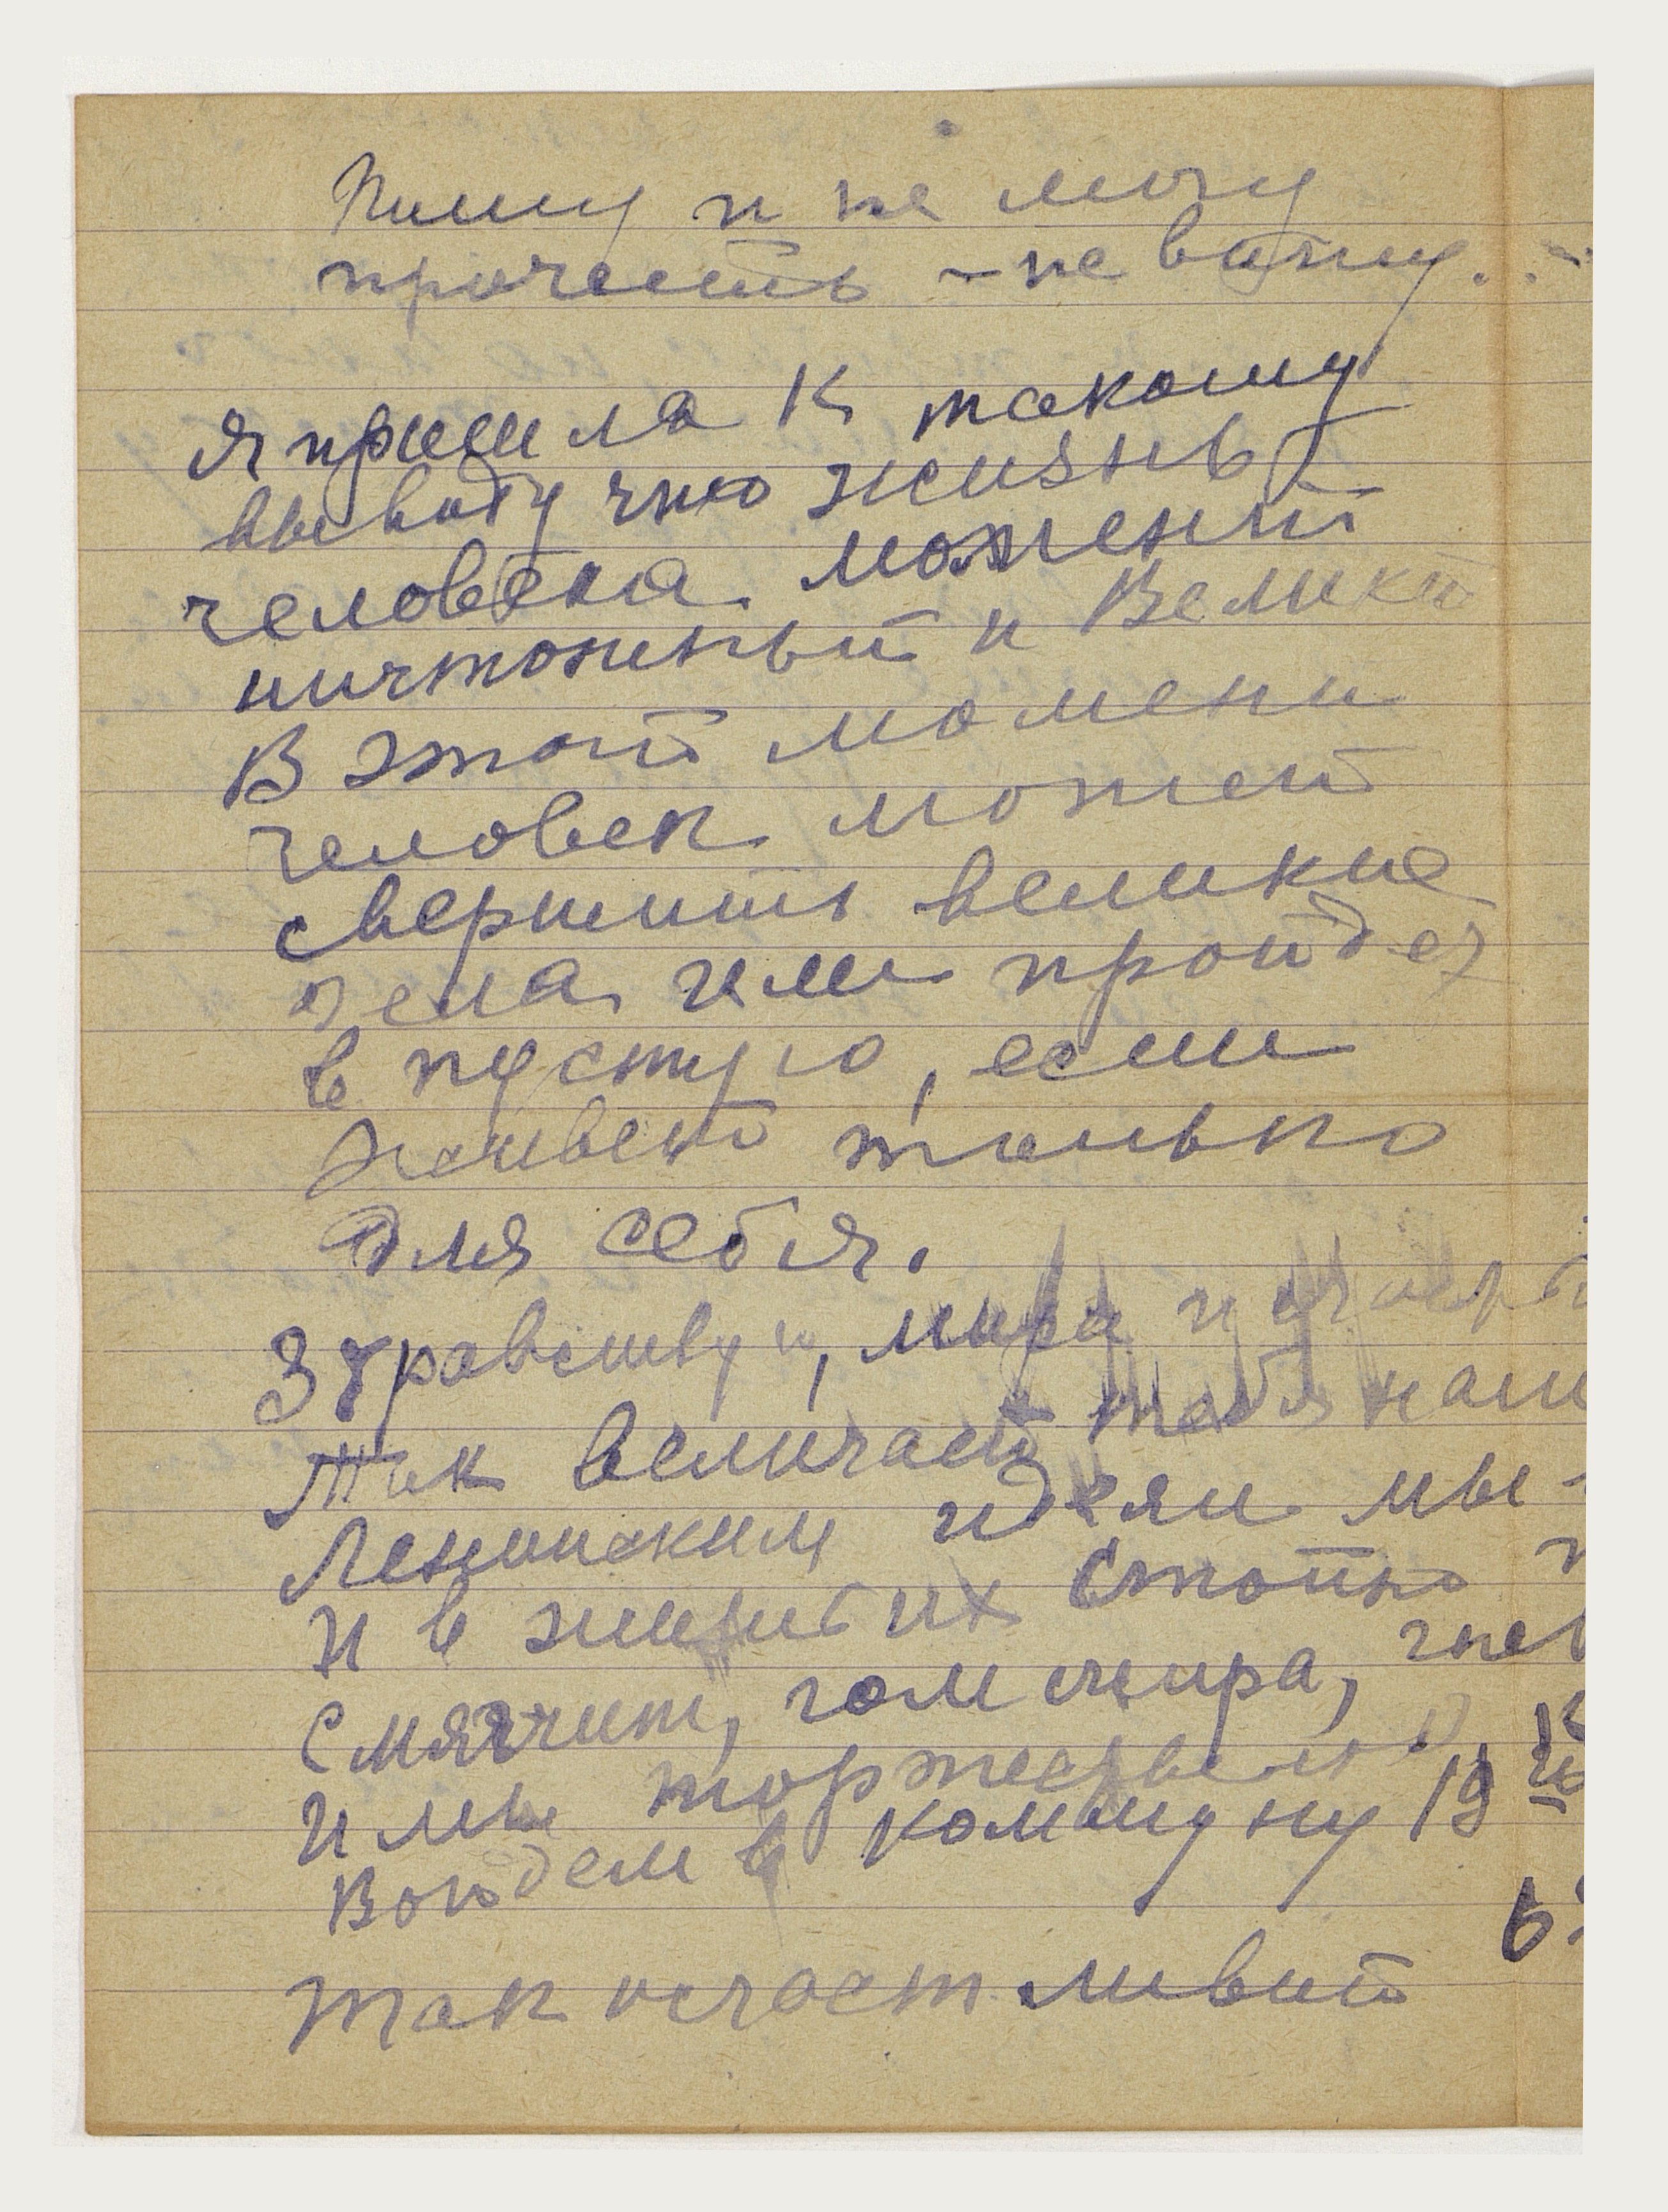 Пишу и не могу
прочесть - не вижу...
я пришла к такому
выводу что жизнь
человека. моменти
ничтожный и Велики
В этот момени
человек может
свершить великие
дела или пройдет
в пустую, если
живет только
для себя.
Здравствуй, мира и
Так величает тебя наш
Ленинским идеям мы -
И в их стойко
Смягчит, голи мира, гнев
И мы торжествено
Войдем в коммуну 19
так исчаст ливит